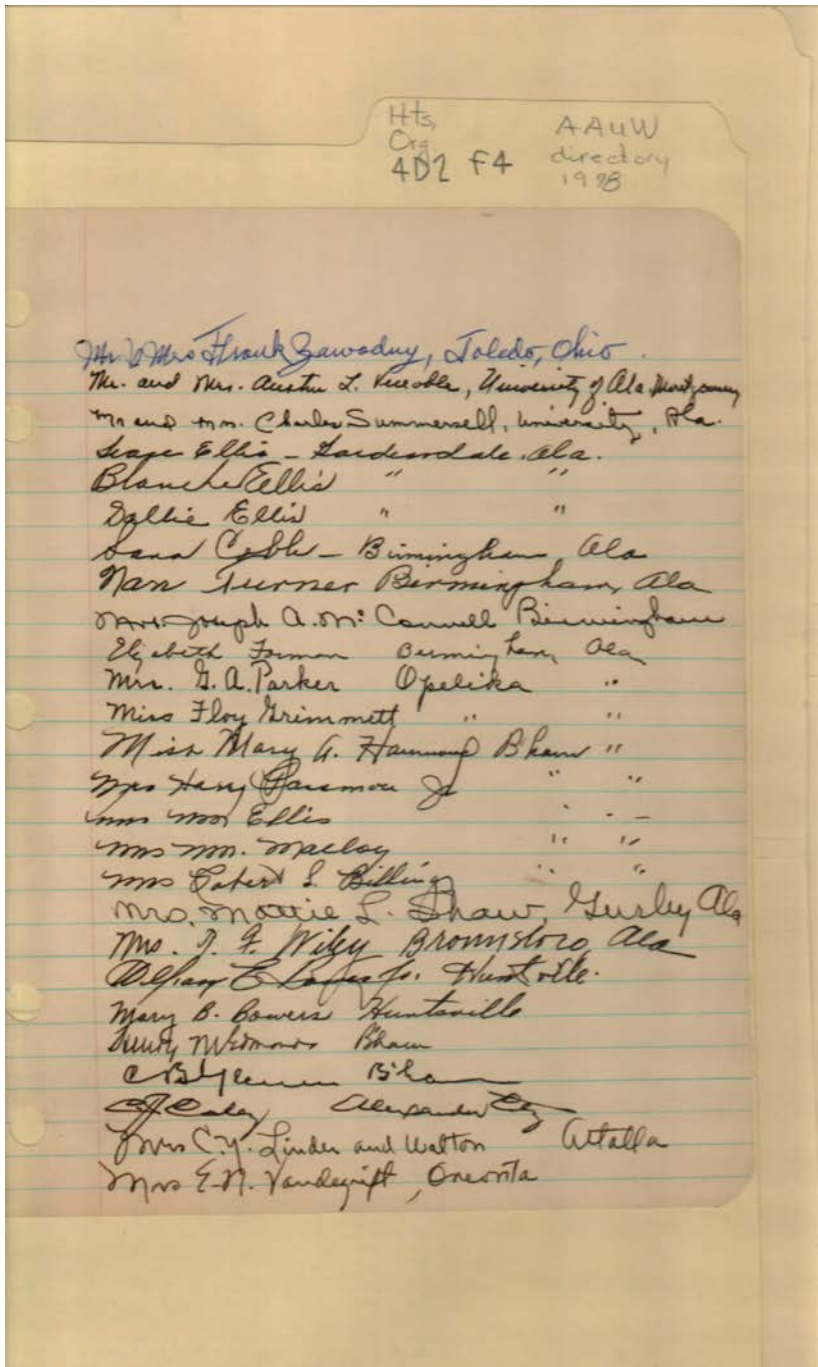 Hts,
Org.
4D2 F4
AAUW
directory
1978
Mr & Mrs Frank Zawodny, Toledo, Ohio.
Mr. and Mrs. Austin L. Venable, University of Ala Montgomery
Mr and Mrs. Charles Summersell, University, Ala.
Ellis - Gardendale. Ala.
Blanche Ellis " "
Dollie Ellis " "
Sara Cobb - Birmingham, Ala
Nan Turner Birmingham, Ala
Mrs. Joseph A. McConnell Birmingham
Elizabeth Forman Birmingham, Ala
Mrs. G. A. Parker Opelika "
Miss Floy Grimmett " "
Miss Mary A. Hammond Bham "
Mrs Harry Jr " "
Mrs Ellis " - -
Mrs Wm. Maclay " "
Mrs Robert L. Billings " "
Mrs. Mattie L. Shaw, Gurley Ala
Mrs. T. F. Wiley Brownsboro, Ala
William E Jr. Huntsville.
Mary B. Bowers Huntsville
Bham
C B Glenn B'ham
Alexander City
Mrs C. Y. Linder and Walton Attalla
Mrs E. N. Vandegrift, Oneonta